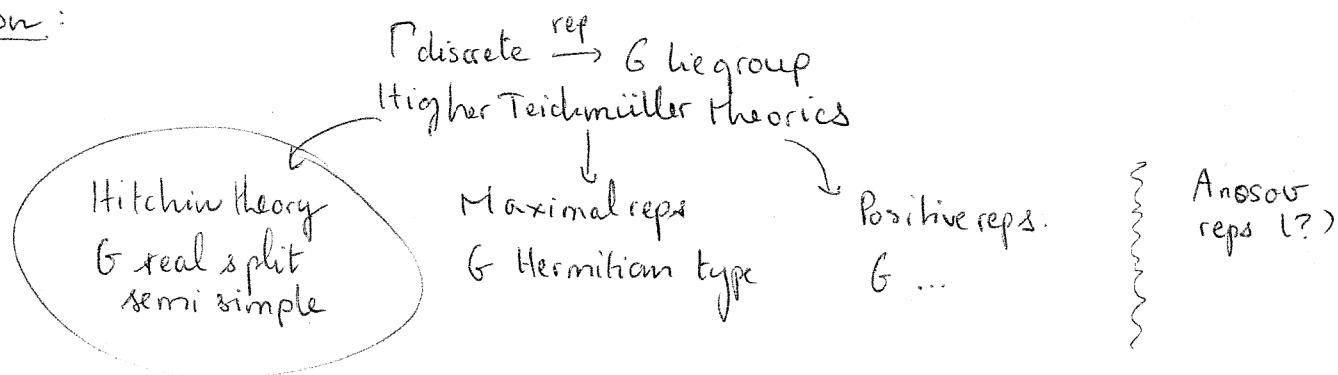 on :
Γ discrete rep → G Lie group
Higher Teichmüller theories
Hitchin theory
G real split
semi simple
Maximal reps
G Hermitian type
Positive reps.
G ...
Anosov
reps (?)